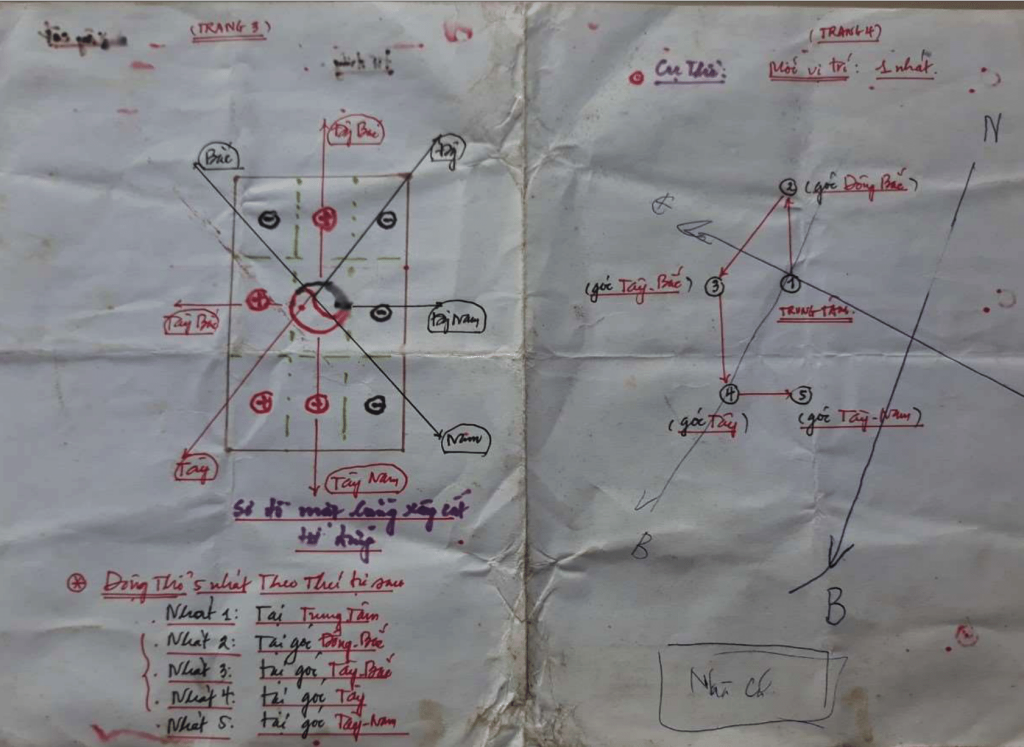 (TRANG 3)
Bắc
Đg Bắc
Đg
Tây Bắc
Đg Nam
Tây
Nam
Tây Nam
Sơ đồ mặt bằng xây cất
từ đường
Động Thổ 5 nhát Theo Thứ tự sau
. Nhát 1: Tại Trung Tâm
. Nhát 2: Tại góc Đông-Bắc
. Nhát 3: tại góc Tây-Bắc
. Nhát 4: tại góc Tây
. Nhát 5. tại góc Tây-Nam
(TRANG 4)
Cụ Thể: Mỗi vị trí: 1 nhát.
N
2 (góc Đông Bắc)
(góc Tây-Bắc) 3
1
TRUNG TÂM
4 5
(góc Tây) (góc Tây-Nam)
B
B
Nhà